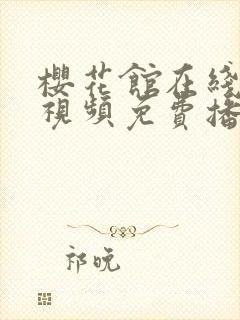 櫻花館在綫
視頻免費播
祁晚